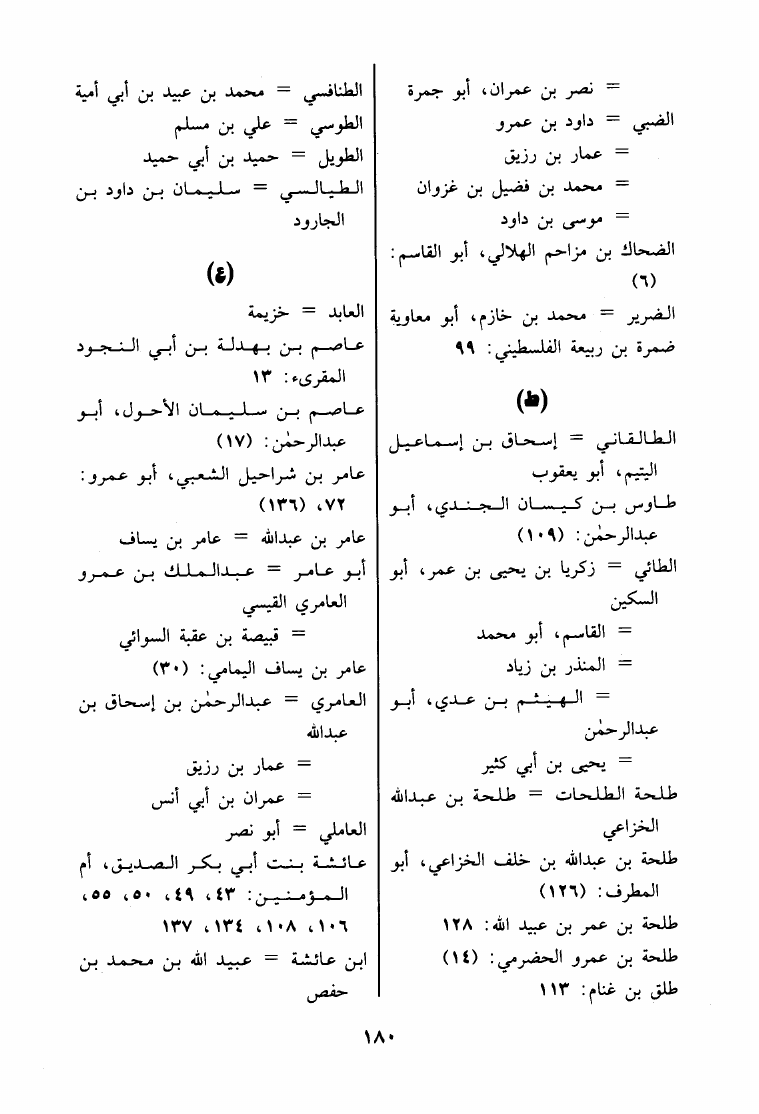 = نصر بن عمران، أبو جمرة
الضبي = داود بن عمرو
= عمار بن رزيق
= محمد بن فضيل بن غزوان
= موسى بن داود
الضحاك بن مزاحم الهلالي، أبو القاسم:
(٦)
الضرير = محمد بن خازم، أبو معاوية
ضمرة بن ربيعة الفلسطيني: ٩٩
(ط)
الطالقاني = إسحاق بن إسماعيل
اليتيم، أبو يعقوب
طاوس بن كيسان الجندي، أبو
عبدالرحمٰن: (١٠٩)
الطائي = زكريا بن يحيى بن عمر، أبو
السكين
= القاسم، أبو محمد
= المنذر بن زياد
= الهيثم بن عدي، أبو
عبدالرحمٰن
= يحيى بن أبي كثير
طلحة الطلحات = طلحة بن عبدالله
الخزاعي
طلحة بن عبدالله بن خلف الخزاعي، أبو
المطرف: (١٢٦)
طلحة بن عمر بن عبيد الله: ١٢٨
طلحة بن عمرو الحضرمي: (١٤)
طلق بن غنام: ١١٣
الطنافسي = محمد بن عبيد بن أبي أمية
الطوسي = علي بن مسلم
الطويل = حميد بن أبي حميد
الطيالسي = سليمان بن داود بن
الجارود
(ع)
العابد = خزيمة
عاصم بن بهدلة بن أبي النجود
المقرىء: ١٣
عاصم بن سليمان الأحول، أبو
عبدالرحمٰن: (١٧)
عامر بن شراحيل الشعبي، أبو عمرو:
٧٢، (١٣٦)
عامر بن عبدالله = عامر بن يساف
أبو عامر = عبدالملك بن عمرو
العامري القيسي
= قبيصة بن عقبة السوائي
عامر بن يساف اليمامي: (٣٠)
العامري = عبدالرحمٰن بن إسحاق بن
عبدالله
= عمار بن رزيق
= عمران بن أبي أنس
العاملي = أبو نصر
عائشة بنت أبي بكر الصديق، أم
المؤمنين: ٤٣، ٤٩، ٥٠، ٥٥،
١٠٦، ١٠٨، ١٣٤، ١٣٧
ابن عائشة = عبيد الله بن محمد بن
حفص
١٨٠